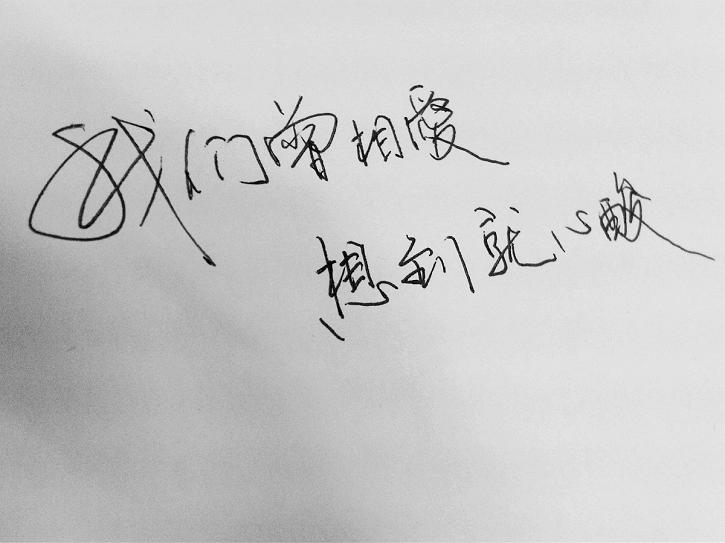 我们曾相愛
想到就心酸